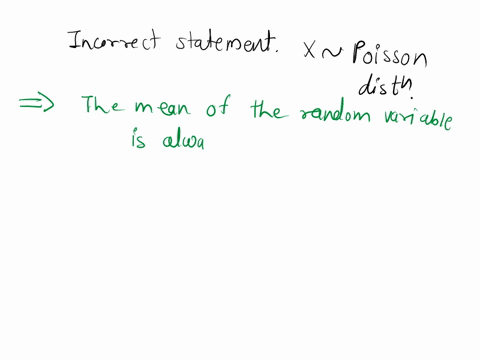 Incorrect statement. X ~ Poisson
distn.
⇒ The mean of the random variable
is alwa